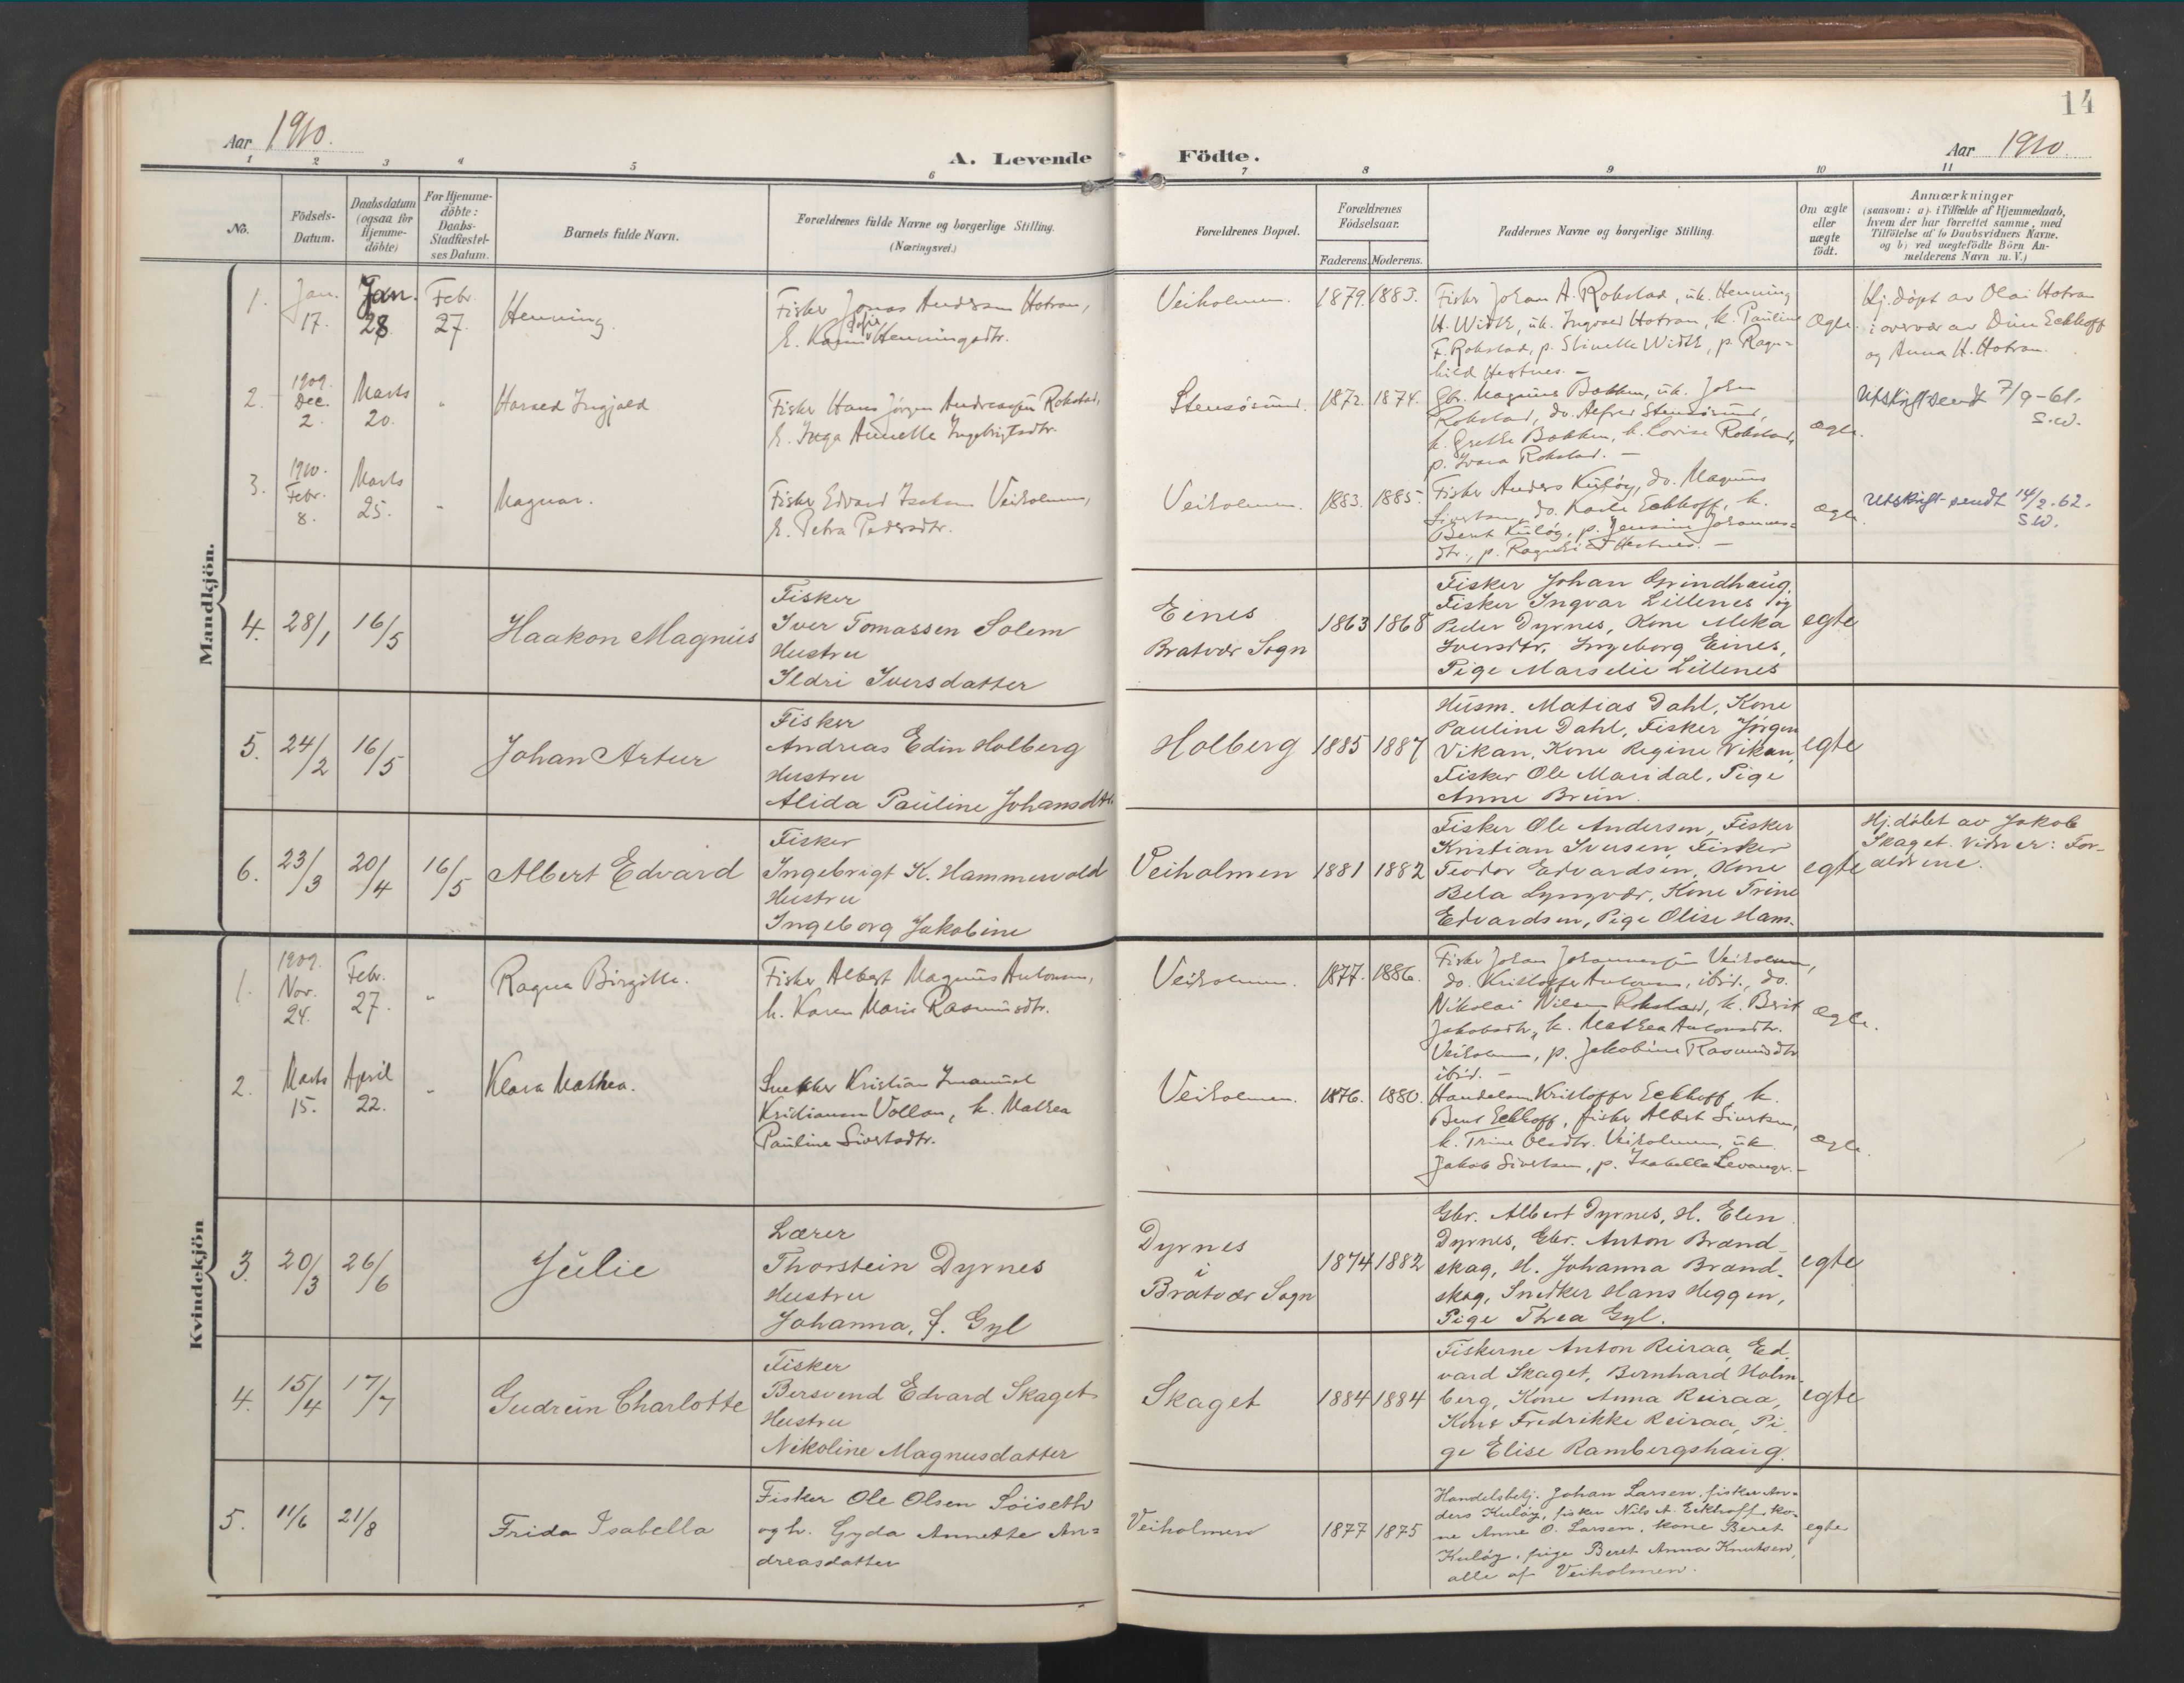 14
Aar 1910.
A. Levende Födte.
Aar 1910.
1 2 3 4 5 6 7 8 9 10 11
No.
Födsels-
Datum.
Daabsdatum
(ogsaa for
Hjemme-
döbte)
For Hjemme-
döbte:
Daabs-
Stadfæstel-
ses Datum.
Barnets fulde Navn.
Forældrenes fulde Navne og borgerlige Stilling.
(Næringsvei.)
Forældrenes Bopæl.
Forældrenes
Födselsaar.
Faderens. Moderens.
Faddernes Navne og borgerlige Stilling.
Om ægte
eller
uægte
födt.
Anmærkninger
(saasom: a) i Tilfælde af Hjemmedaab,
hvem der har forrettet samme, med
Tilföielse af to Daabsvidners Navne,
og b) ved uægtefödte Börn An-
melderens Navn m. V.)
Mandkjön.
1.
Jan.
17.
Jan.
28.
Febr.
27.
Henning.
Fisker Jonas Andersen Hotran,
h. Karen Sofie Henningsdtr.
Veiholmen.
1879. 1883.
Fisker Johan A. Rokstad, uk. Henning
H. Width, uk. Ingvald Hotran, k. Pauline
F. Rokstad, p. Stinette Width, p. Ragn-
hild Hestnes. –
Ægte.
Hj.döpt av Olai Hotran
i overvær av Dina Eckhoff
og Anna H. Hotran.
2.
1909.
Dec.
2.
Marts
20.
"
Harsed Ingjald
Fisker Hans Jörgen Andreassen Rokstad,
h. Inga Annette Ingebrigtsdtr.
Stensösund.
1872. 1874.
Gbr. Magnus Bakken, uk. Johan
Rokstad, do. Alfred Stensösund,
k. Grethe Bakken, k. Lovise Rokstad,
p. Ivara Rokstad. –
ægte.
Utskrift sendt 7/9-61.
S.W.
3.
1910.
Febr.
8.
Marts
25.
"
Magnar.
Fisker Edvard Isaksen Veiholmen,
h. Petra Pedersdtr.
Veiholmen.
1883. 1885.
Fisker Anders Kulöy, do. Magnus
Sivertsen, do. Karle Eckhoff, k.
Berit Kulöy, p. Jensine Johannes-
dtr., p. Ragnhild Hestnes. –
ægte.
Utskrift sendt 14/2-62.
S.W.
4.
28/1
16/5
Haakon Magnus
Fisker
Iver Tomassen Solem
Hustru
Ildri Iversdatter
Eines
Bratvær Sogn
1863 1868
Fisker Johan Grindhaug,
Fisker Ingvar Lillenes og
Peder Dyrnes, Kone Meka
Iversdtr. Ingeborg Eines,
Pige Marselie Lillenes
egte
5.
24/2
16/5
Johan Artur
Fisker
Andreas Edin Holberg
Hustru
Alida Pauline Johansdtr.
Holberg
1885 1887
Husm. Matias Dahl, Kone
Pauline Dahl, Fisker Jørgen
Vikan, Kone Regine Vikan,
Fisker Ole Maridal, Pige
Anne Brun.
egte
6.
23/3
20/4
16/5
Albert Edvard
Fisker
Ingebrigt K. Hammervold
Hustru
Ingeborg Jakobine
Veiholmen
1881 1882
Fisker Ole Andersen, Fisker
Kristian Iversen, Fisker
Teodor Edvardsen, Kone
Bela Lyngvær, Kone Trine
Edvardsen, Pige Olise Ham.
egte
Hj.döbt av Jakob
Skaget. Vidner: For-
ældrene.
Kvindekjön
1.
1909.
Nov.
24.
Febr.
27.
"
Ragna Birgitte.
Fisker Albert Magnus Antonsen,
h. Karen Marie Rasmusdtr.
Veiholmen.
1877. 1886.
Fisker Johan Johannessen Veiholmen,
do. Kristoffer Antonsen, ibid., do.
Nikolai Nilsen Rokstad, k. Berit
Jakobsdtr., k. Mathea Antonsdtr.
Veiholmen, p. Jakobine Rasmusdtr.
ibid. –
Ægte.
2.
Marts
15.
April
22.
"
Klara Mathea.
Snekker Kristian Imanuel
Kristiansen Vollan, h. Mathea
Pauline Sivertsdtr.
Veiholmen.
1876. 1880.
Handelsm. Kristoffer Eckhoff, k.
Berit Eckhoff, fisker Albert Sivertsen,
k. Trine Olsdtr. Veiholmen, uk.
Jakob Sivertsen, p. Isabella Levanger. –
ægte.
3.
20/3
26/6
Julie
Lærer
Thorstein Dyrnes
Hustru
Johanna, f. Gyl
Dyrnes
i
Bratvær Sogn
1874 1882
Gbr. Albert Dyrnes, H. Elen
Dyrnes, Gbr. Anton Brand-
skag, H. Johanna Brand-
skag, Snedker Hans Heggen,
Pige Thea Gyl.
egte
4.
15/4
17/7
Gudrun Charlotte
Fisker
Bersvend Edvard Skaget
Hustru
Nikoline Magnusdatter
Skaget
1884 1884
Fiskerne Anton Reiraa, Ed.
vard Skaget, Bernhard Holm-
berg, Kone Anna Reiraa,
Kone Fredrikke Reiraa, Pi
ge Elise Rambergshaug.
egte
5.
11/6
21/8
Frida Isabella
Fisker Ole Olsen Söiseth
og h. Gyda Annette An-
dreasdatter
Veiholmen
1877 1875
Handelsbetj. Johan Larsen, fisker An-
ders Kulöy, fisker Nils A. Eckhoff, ko-
ne Anne O. Larsen, kone Beret
Kulöy, pige Beret Anna Knutsen,
alle af Veiholmen.
egte